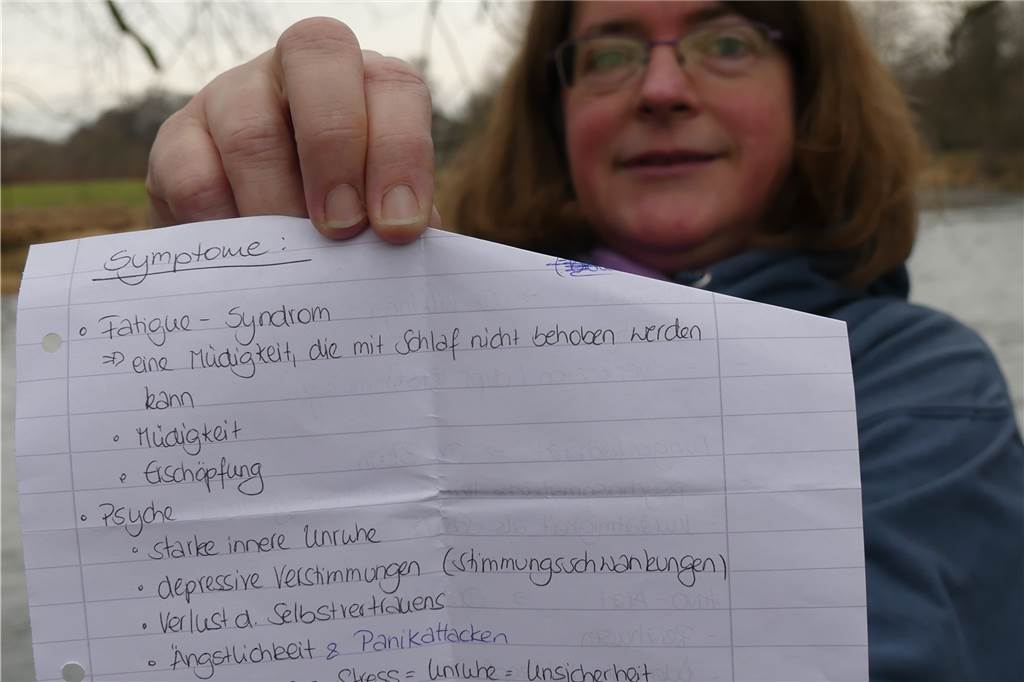 Symptome:
• Fatigue-Syndrom
⇒ eine Müdigkeit, die mit Schlaf nicht behoben werden
kann
• Müdigkeit
• Erschöpfung
• Psyche
• starke innere Unruhe
• depressive Verstimmungen (Stimmungsschwankungen)
• Verlust d. Selbstvertrauens
• Ängstlichkeit & Panikattacken
Stress = Unruhe = Unsicherheit